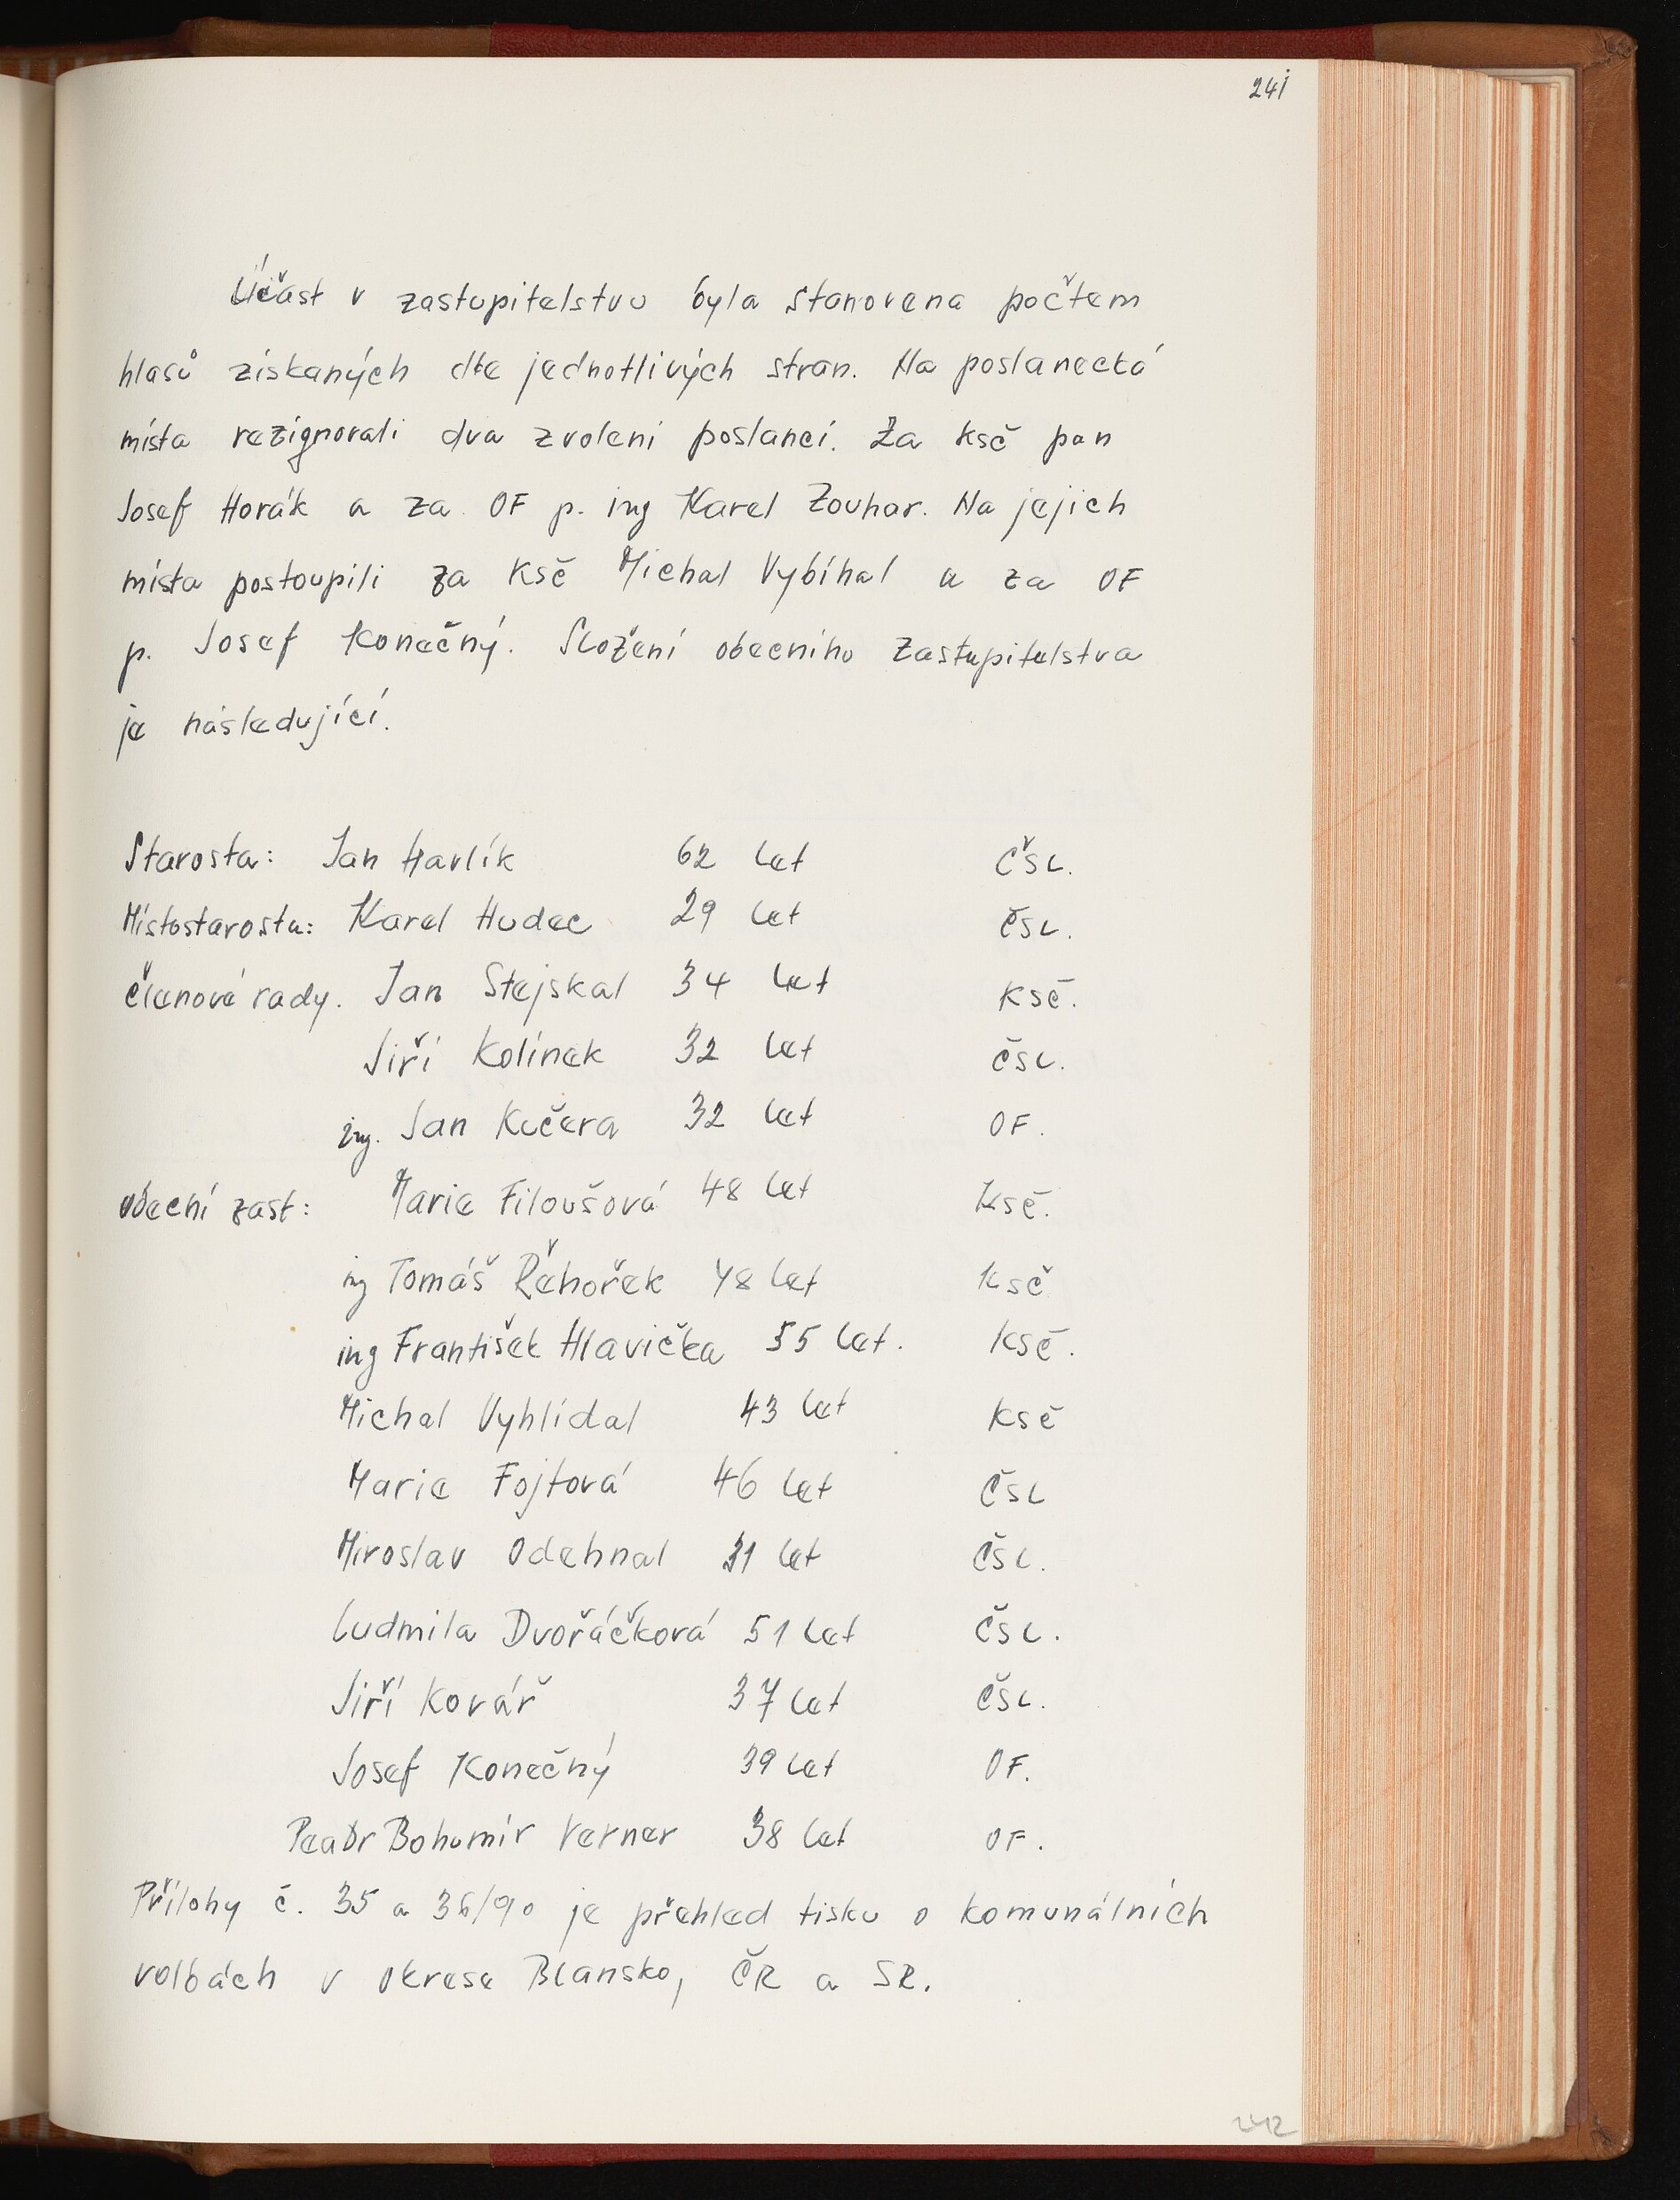 241
Účast v zastupitelstvu byla stanovena počtem
hlasů získaných dle jednotlivých stran. Na poslanecká
místa rezignovali dva zvolení poslanci. Za ksč pan
Josef Horák a za OF p. ing Karel Zouhar. Na jejich
místa postoupili za Ksč Michal Vybíhal a za OF
p. Josef Konečný. Složení obecního zastupitelstva
je následující.
Starosta: Jan Havlík 62 let ČSL.
Místostarosta: Karel Hudec 29 let ČSL.
členové rady. Jan Stejskal 34 let Ksč.
Jiří Kolínek 32 let ČSL.
ing. Jan Kučera 32 let OF.
obecní zast: Marie Filoušová 48 let Ksč.
ing Tomáš Řehořek 48 let Ksč
ing František Hlavička 55 let. Ksč.
Michal Vyhlídal 43 let Ksč
Marie Fojtová 46 let ČSL
Miroslav Odehnal 31 let ČSL.
Ludmila Dvořáčková 51 let ČSL.
Jiří Kovář 37 let ČSL.
Josef Konečný 39 let OF.
PeaDr Bohumír Verner 38 let OF.
Přílohy č. 35 a 36/90 je přehled tisku o komunálních
volbách v okrese Blansko, ČR a SR.
242